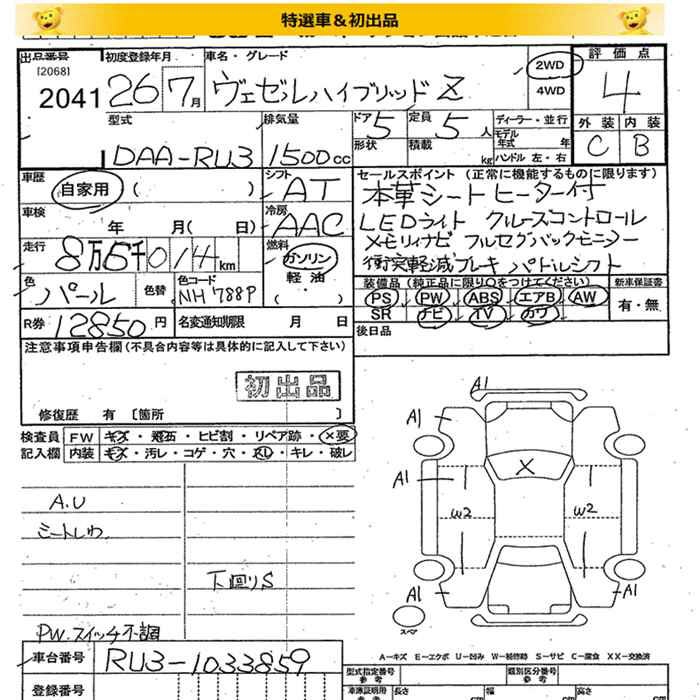 特選車＆初出品
出品番号 初度登録年月 車名・グレード 2WD 4WD 評価点
[2068]
2041 26 7月 ヴェゼルハイブリッド Z 4
型式 排気量 ドア 5 定員 5 人 ディーラー・並行 外装 内装
形状 積載 kg モデル年式 年 C B
DAA-RU3 1500cc ハンドル 左・右
車歴 シフト セールスポイント (正常に機能するものに限ります)
自家用 ( ) AT 本革シートヒーター付
車検 冷房 LEDライト クルーズコントロール
年 月( 日) AAC メモリィナビ フルセグバックモニター
走行 8万5千014km 燃料 ガソリン 衝突軽減ブレーキ パドルシフト
軽油
( ・ )
色 パール 色替 色コード NH788P 装備品 (純正品に限り○をつけてください) 新車保証書
PS PW ABS エアB AW 有・無
SR ナビ TV カワ
R券 12850円 名変通知期限 月 日 後日品
注意事項申告欄 (不具合内容等は具体的に記入して下さい)
初出品
修復歴 有 [箇所 ]
検査員 FW キズ・飛石・ヒビ割・リペア跡・×要
記入欄 内装 キズ・汚レ・コゲ・穴・スレ・キレ・破レ
A.U
シートしわ
下回りS
PW.スイッチ不調
A1
A1 A1
X
A1 A1
W2 W2
A1 A1
スペア
A-キズ E-エクボ U-凹み W-補修跡 S-サビ C-腐食 XX-交換済
車台番号 RU3-1033859
型式指定番号 参考 類別区分番号 参考
登録番号 車庫証明用 参考 長さ cm 幅 cm 高さ cm